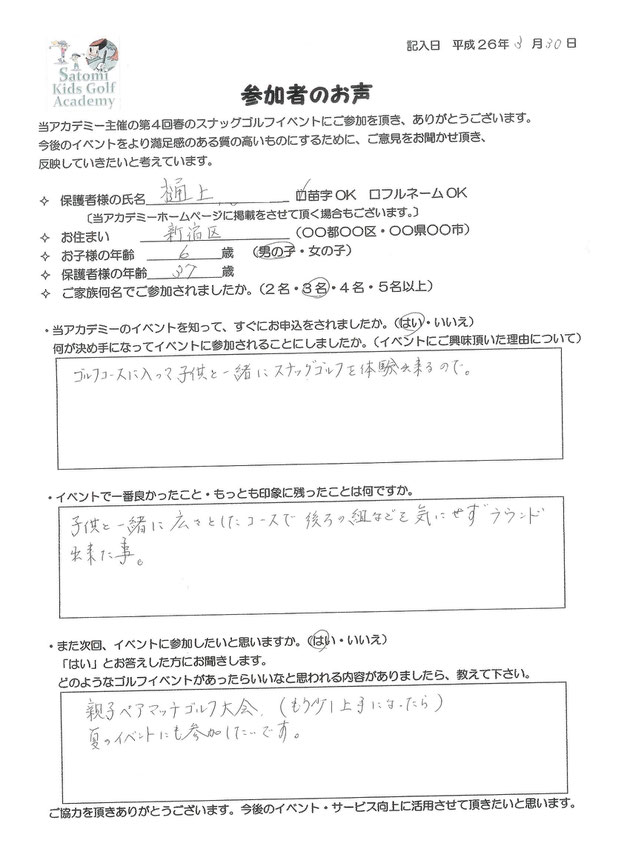 記入日 平成26年3月30日
Satomi
Kids Golf
Academy
参加者のお声
当アカデミー主催の第4回春のスナッグゴルフイベントにご参加を頂き、ありがとうございます。
今後のイベントをより満足感のある質の高いものにするために、ご意見をお聞かせ頂き、
反映していきたいと考えています。
✧ 保護者様の氏名 樋上 ☑苗字OK □フルネームOK
〔当アカデミーホームページに掲載をさせて頂く場合もございます。〕
✧ お住まい 新宿区 (〇〇都〇〇区・〇〇県〇〇市)
✧ お子様の年齢 6 歳 (男の子・女の子)
✧ 保護者様の年齢 37 歳
✧ ご家族何名でご参加されましたか。(2名・3名・4名・5名以上)
・当アカデミーのイベントを知って、すぐにお申込をされましたか。(はい・いいえ)
何が決め手になってイベントに参加されることにしましたか。(イベントにご興味頂いた理由について)
ゴルフコースに入って子供と一緒にスナッグゴルフを体験出来るので。
・イベントで一番良かったこと・もっとも印象に残ったことは何ですか。
子供と一緒に広々としたコースで後ろの組などを気にせずラウンド
出来た事。
・また次回、イベントに参加したいと思いますか。(はい・いいえ)
「はい」とお答えした方にお聞きします。
どのようなゴルフイベントがあったらいいなと思われる内容がありましたら、教えて下さい。
親子ペアマッチゴルフ大会、(もう少し上手になったら)
夏のイベントにも参加したいです。
ご協力を頂きありがとうございます。今後のイベント・サービス向上に活用させて頂きたいと思います。